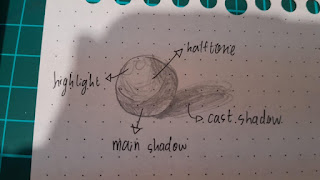 halftone
highlight
cast shadow
main shadow